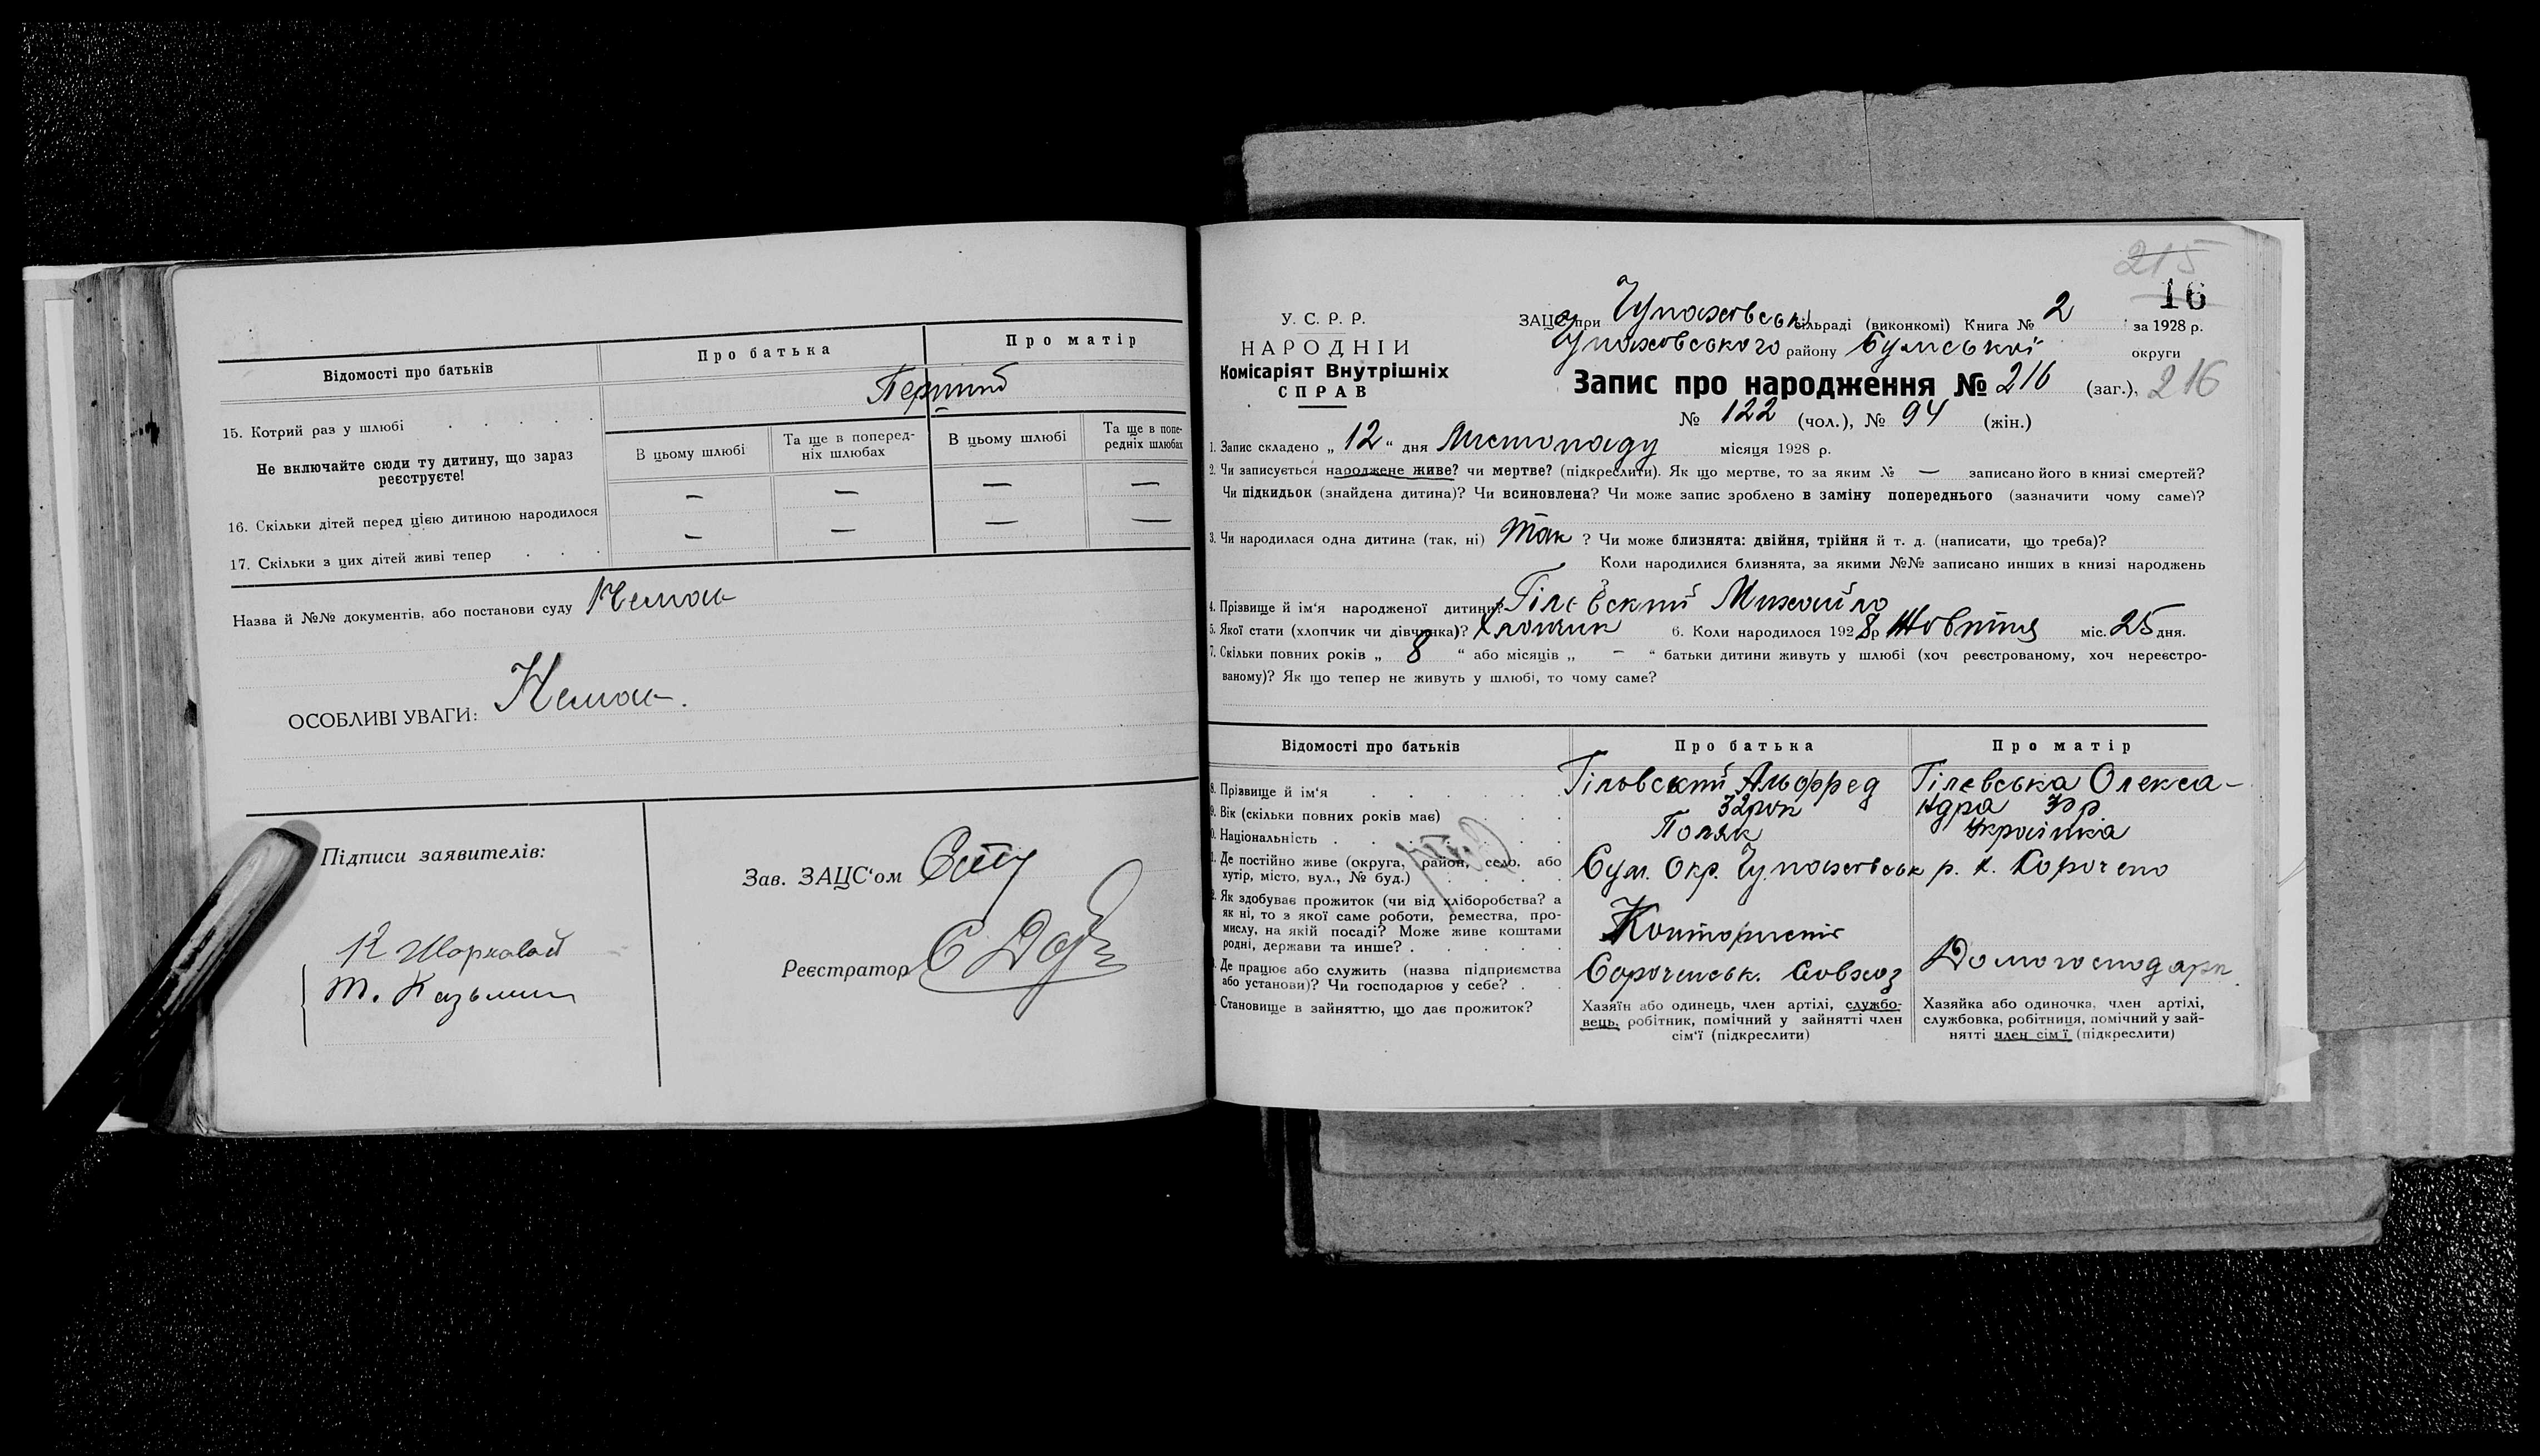 Відомості про батьків
Про батька
Про матір
15. Котрий раз у шлюбі
Перший
Не включайте сюди ту дитину, що зараз реєструєте!
В цьому шлюбі
Та ще в поперед-
ніх шлюбах
В цьому шлюбі
Та ще в попе-
редніх шлюбах
16. Скільки дітей перед цією дитиною народилося — — — —
17. Скільки з цих дітей живі тепер — — — —
Назва й №№ документів, або постанови суду Немає
ОСОБЛИВІ УВАГИ: Немає.
Підписи заявителів:
Зав. ЗАЦС'ом
Реєстратор
215
16
У. С. Р. Р.
НАРОДНІЙ
Комісаріят Внутрішніх
СПРАВ
ЗАЦС при Чупахівськ сільраді (виконкомі) Книга № 2 за 1928 р.
Чупахівського району Сумської округи
Запис про народження № 216 (заг.), 216
№ 122 (чол.), № 94 (жін.)
1. Запис складено „ 12 “ дня Листопаду місяця 1928 р.
2. Чи записується народжене живе? чи мертве? (підкреслити). Як що мертве, то за яким № — записано його в книзі смертей?
Чи підкидьок (знайдена дитина)? Чи всиновлена? Чи може запис зроблено в заміну попереднього (зазначити чому саме)?
3. Чи народилася одна дитина (так, ні) Так ? Чи може близнята: двійня, трійня й т. д. (написати, що треба)?
Коли народилися близнята, за якими №№ записано инших в книзі народжень
4. Прізвище й ім'я народженої дитини? Гілєвский Михайло
5. Якої стати (хлопчик чи дівчинка)? Хлопчик 6. Коли народилося 1928 р Жовтня міс. 25 дня.
7. Скільки повних років „ 8 “ або місяців „ – “ батьки дитини живуть у шлюбі (хоч реєстрованому, хоч нереєстро-
ваному)? Як що тепер не живуть у шлюбі, то чому саме?
Відомості про батьків
Про батька
Про матір
8. Прізвище й ім'я
Гілєвский Альофред
Гілєвська Олекса-
ндра
9. Вік (скільки повних років має)
32 рок
30 р
0. Національність
Поляк
Українка
1. Де постійно живе (округа, район, село. або
хутір, місто, вул., № буд.)
Сум. Окр. Чупахівськ р. х. Сорочено
2. Як здобуває прожиток (чи від хліборобства? а
як ні, то з якої саме роботи, ремества, про-
мислу, на якій посаді? Може живе коштами
родні, держави та инше?
Конторщик
Де працює або служить (назва підприємства
або установи)? Чи господарює у себе?
Сороченськ. Совхоз
Домогосподарк
Становище в зайняттю, що дає прожиток?
Хазяїн або одинець, член артілі, службо-
вець, робітник, помічний у зайнятті член
сім'ї (підкреслити)
Хазяйка або одиночка, член артілі,
службовка, робітниця, помічний у зай-
нятті член сім'ї (підкреслити)